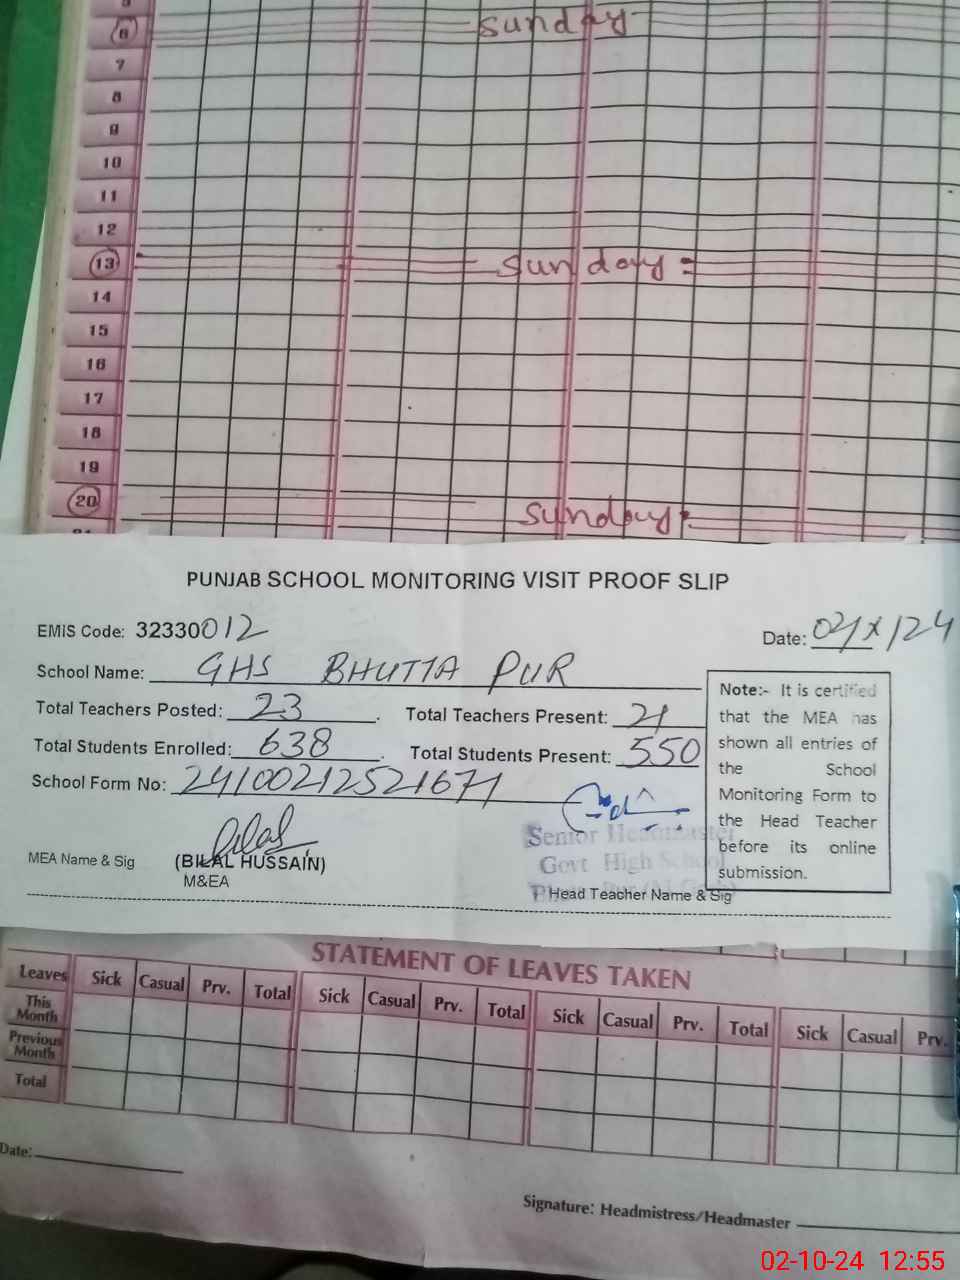 6 Sunday
7
8
9
10
11
12
13 Sunday
14
15
16
17
18
19
20 Sunday
PUNJAB SCHOOL MONITORING VISIT PROOF SLIP
EMIS Code: 32330012
Date: 02/X/24
School Name: GHS BHUTTA PUR
Total Teachers Posted: 23. Total Teachers Present: 21
Total Students Enrolled: 638. Total Students Present: 550
School Form No: 24100212521671
Note:- It is certified
that the MEA has
shown all entries of
the School
Monitoring Form to
the Head Teacher
before its online
submission.
Bilal
MEA Name & Sig (BILAL HUSSAIN)
M&EA
Senior Headmaster
Govt High School
Head Teacher Name & Sig
STATEMENT OF LEAVES TAKEN
Leaves Sick Casual Prv. Total Sick Casual Prv. Total Sick Casual Prv. Total Sick Casual Prv.
This Month
Previous Month
Total
Date:
Signature: Headmistress/Headmaster
02-10-24 12:55